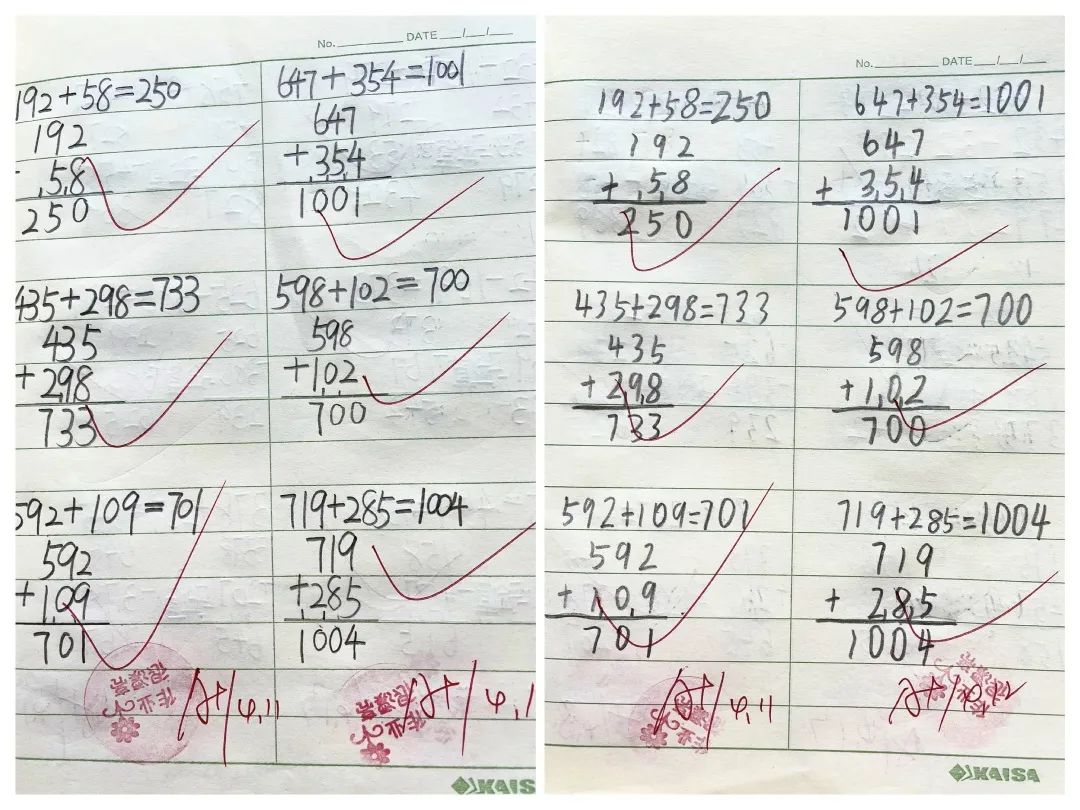 No. DATE / /
192+58=250
192
58
250
647+354=1001
647
+354
1001
435+298=733
435
+298
733
598+102=700
598
+102
700
592+109=701
592
+109
701
719+285=1004
719
+285
1004
作业
很漂亮
A+
作业
很漂亮
A+
KAIS
No. DATE / /
192+58=250
192
+58
250
647+354=1001
647
+354
1001
435+298=733
435
+298
733
598+102=700
598
+102
700
592+109=701
592
+109
701
719+285=1004
719
+285
1004
作业
A+
A+
KAISA